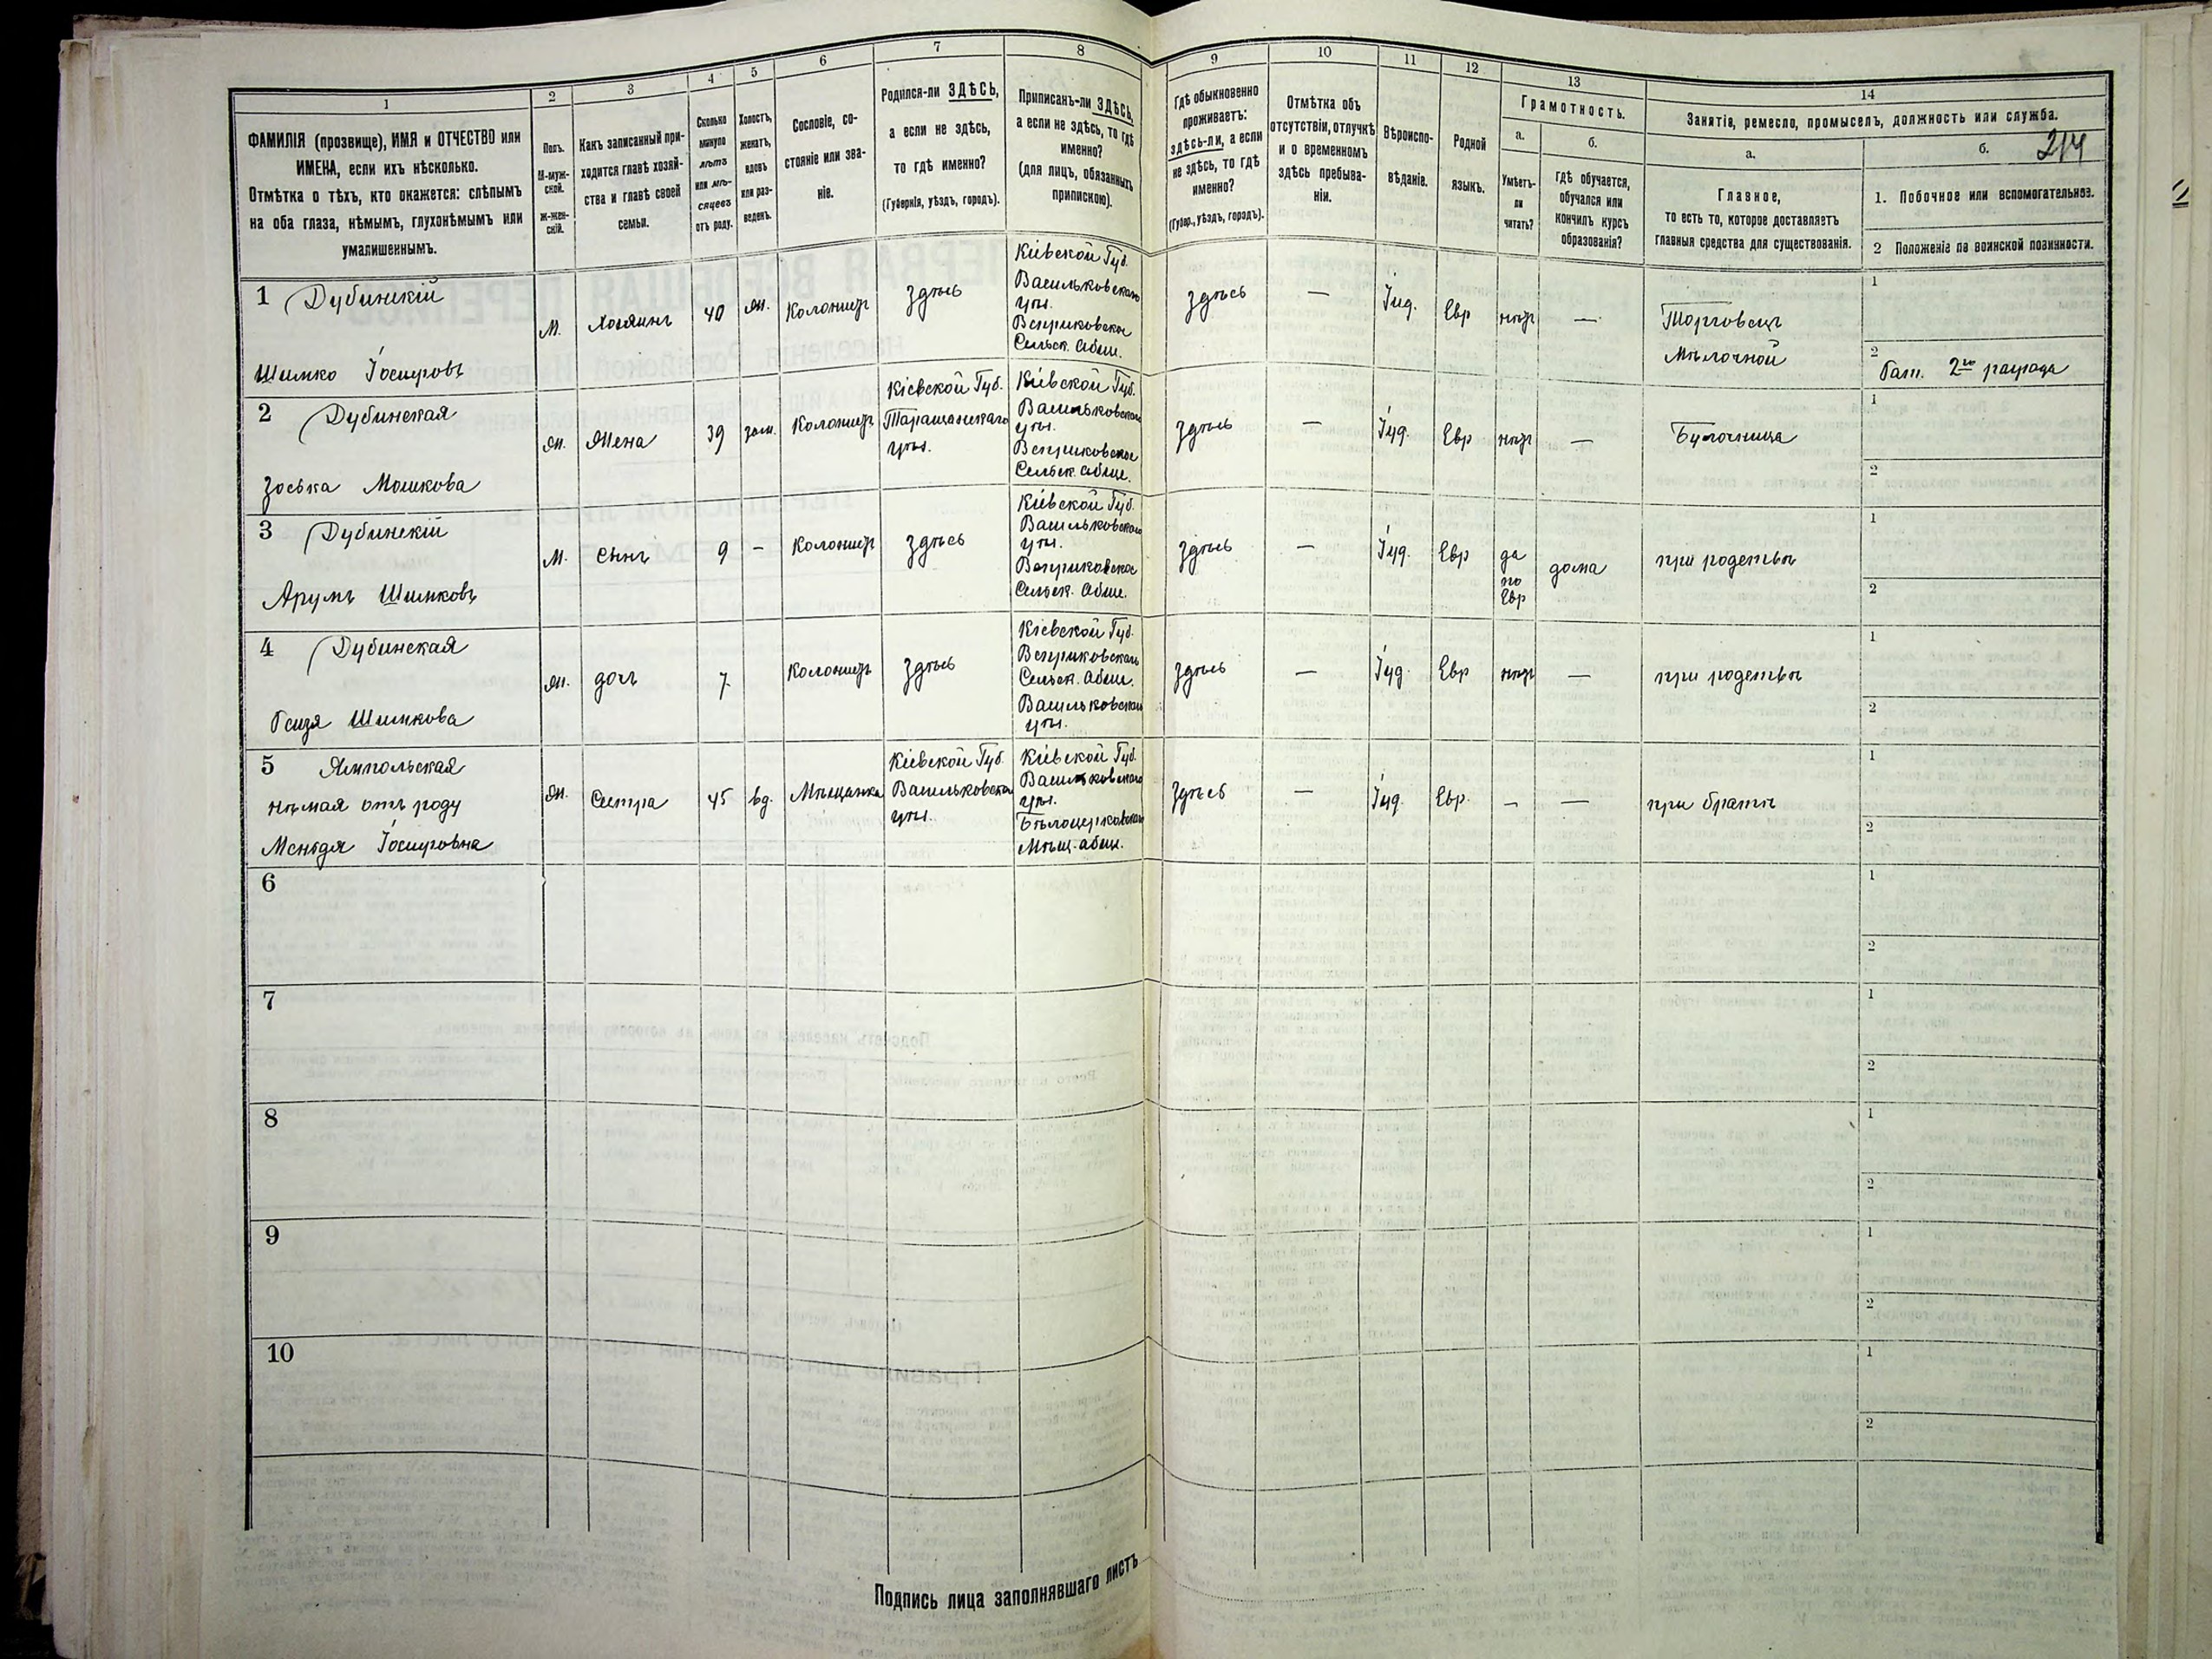 1
2
3
4
5
6
7
8
9
10
11
12
13
14
ФАМИЛІЯ (прозвище), ИМЯ и ОТЧЕСТВО или
ИМЕНА, если ихъ нѣсколько.
Отмѣтка о тѣхъ, кто окажется: слѣпымъ
на оба глаза, нѣмымъ, глухонѣмымъ или
умалишеннымъ.
Полъ.
М-муж-
ской.
Ж-жен-
скій.
Какъ записанный при-
ходится главѣ хозяй-
ства и главѣ своей
семьи.
Сколько
минуло
лѣтъ
или мѣ-
сяцевъ
отъ роду.
Холостъ,
женатъ,
вдовъ
или раз-
веденъ.
Сословіе, со-
стояніе или зва-
ніе.
Родился-ли ЗДѢСЬ,
а если не здѣсь,
то гдѣ именно?
(Губернія, уѣздъ, городъ).
Приписанъ-ли ЗДѢСЬ,
а если не здѣсь, то гдѣ
именно?
(для лицъ, обязанныхъ
припискою).
Гдѣ обыкновенно
проживаетъ:
здѣсь-ли, а если
не здѣсь, то гдѣ
именно?
(Губер., уѣздъ, городъ).
Отмѣтка объ
отсутствіи, отлучкѣ
и о временномъ
здѣсь пребыва-
ніи.
Вѣроиспо-
вѣданіе.
Родной
языкъ.
Грамотность.
а.
Умѣетъ-
ли
читать?
б.
гдѣ обучается,
обучался или
кончилъ курсъ
образованія?
Занятіе, ремесло, промыселъ, должность или служба.
а.
Главное,
то есть то, которое доставляетъ
главныя средства для существованія.
б.
214
1. Побочное или вспомогательное.
2 Положеніе по воинской повинности.
1 Дубинскій
Шимко Іосиповъ
М.
Хозяинъ
40
Ж.
Колонистъ
здѣсь
Кіевской Губ.
Васильковскаго
уѣз.
Веприковское
Сельск. Общ.
здѣсь
—
Іуд.
Евр
нѣтъ
—
Торговецъ
Мѣлочной
1
2
Рат. 2го разряда
2 Дубинская
Зоська Мошкова
Ж.
Жена
39
зам.
Колонистъ
Кіевской Губ.
Таращанскаго
уѣз.
Кіевской Губ.
Васильковскаго
уѣз.
Веприковское
Сельск. Общ.
здѣсь
—
Іуд.
Евр
нѣтъ
—
Булочница
1
2
3 Дубинскій
Арумъ Шимковъ
М.
Сынъ
9
-
Колонистъ
здѣсь
Кіевской Губ.
Васильковскаго
уѣз.
Веприковское
Сельск. Общ.
здѣсь
—
Іуд.
Евр
да
по
Евр
дома
при родствѣ
1
2
4 Дубинская
Шимкова
Ж.
дочь
7
Колонистъ
здѣсь
Кіевской Губ.
Веприковскаго
Сельск. Общ.
Васильковскаго
уѣз.
здѣсь
—
Іуд.
Евр
нѣтъ
—
при родствѣ
1
2
5 Ямпольская
нѣмая отъ роду
Меньдя Іосиповна
Ж.
Сестра
45
вд.
Мѣщанка
Кіевской Губ.
Васильковскаго
уѣз.
Кіевской Губ.
Васильковскаго
уѣз.
Бѣлоцерковскаго
Мѣщ. общ.
здѣсь
—
Іуд.
Евр.
-
—
при братѣ
1
2
6
1
2
7
1
2
8
1
2
9
1
2
10
1
2
Подпись лица заполнявшаго листъ